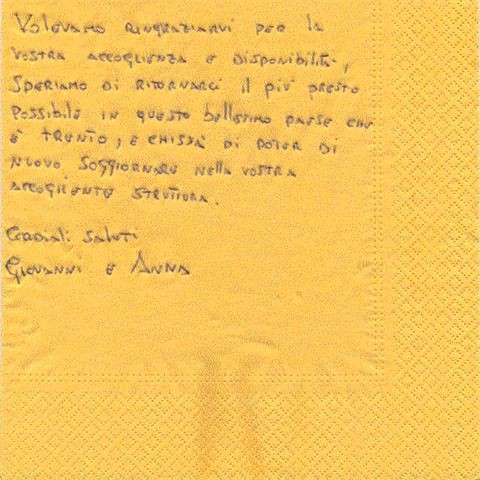 Volevamo ringraziarvi per la
vostra accoglienza e disponibilità,
speriamo di ritornarci il più presto
possibile in questo bellissimo paese che
è Trento, e chissà di poter di
nuovo soggiornare nella vostra
accogliente struttura.
Cordiali saluti
Giovanni e Anna